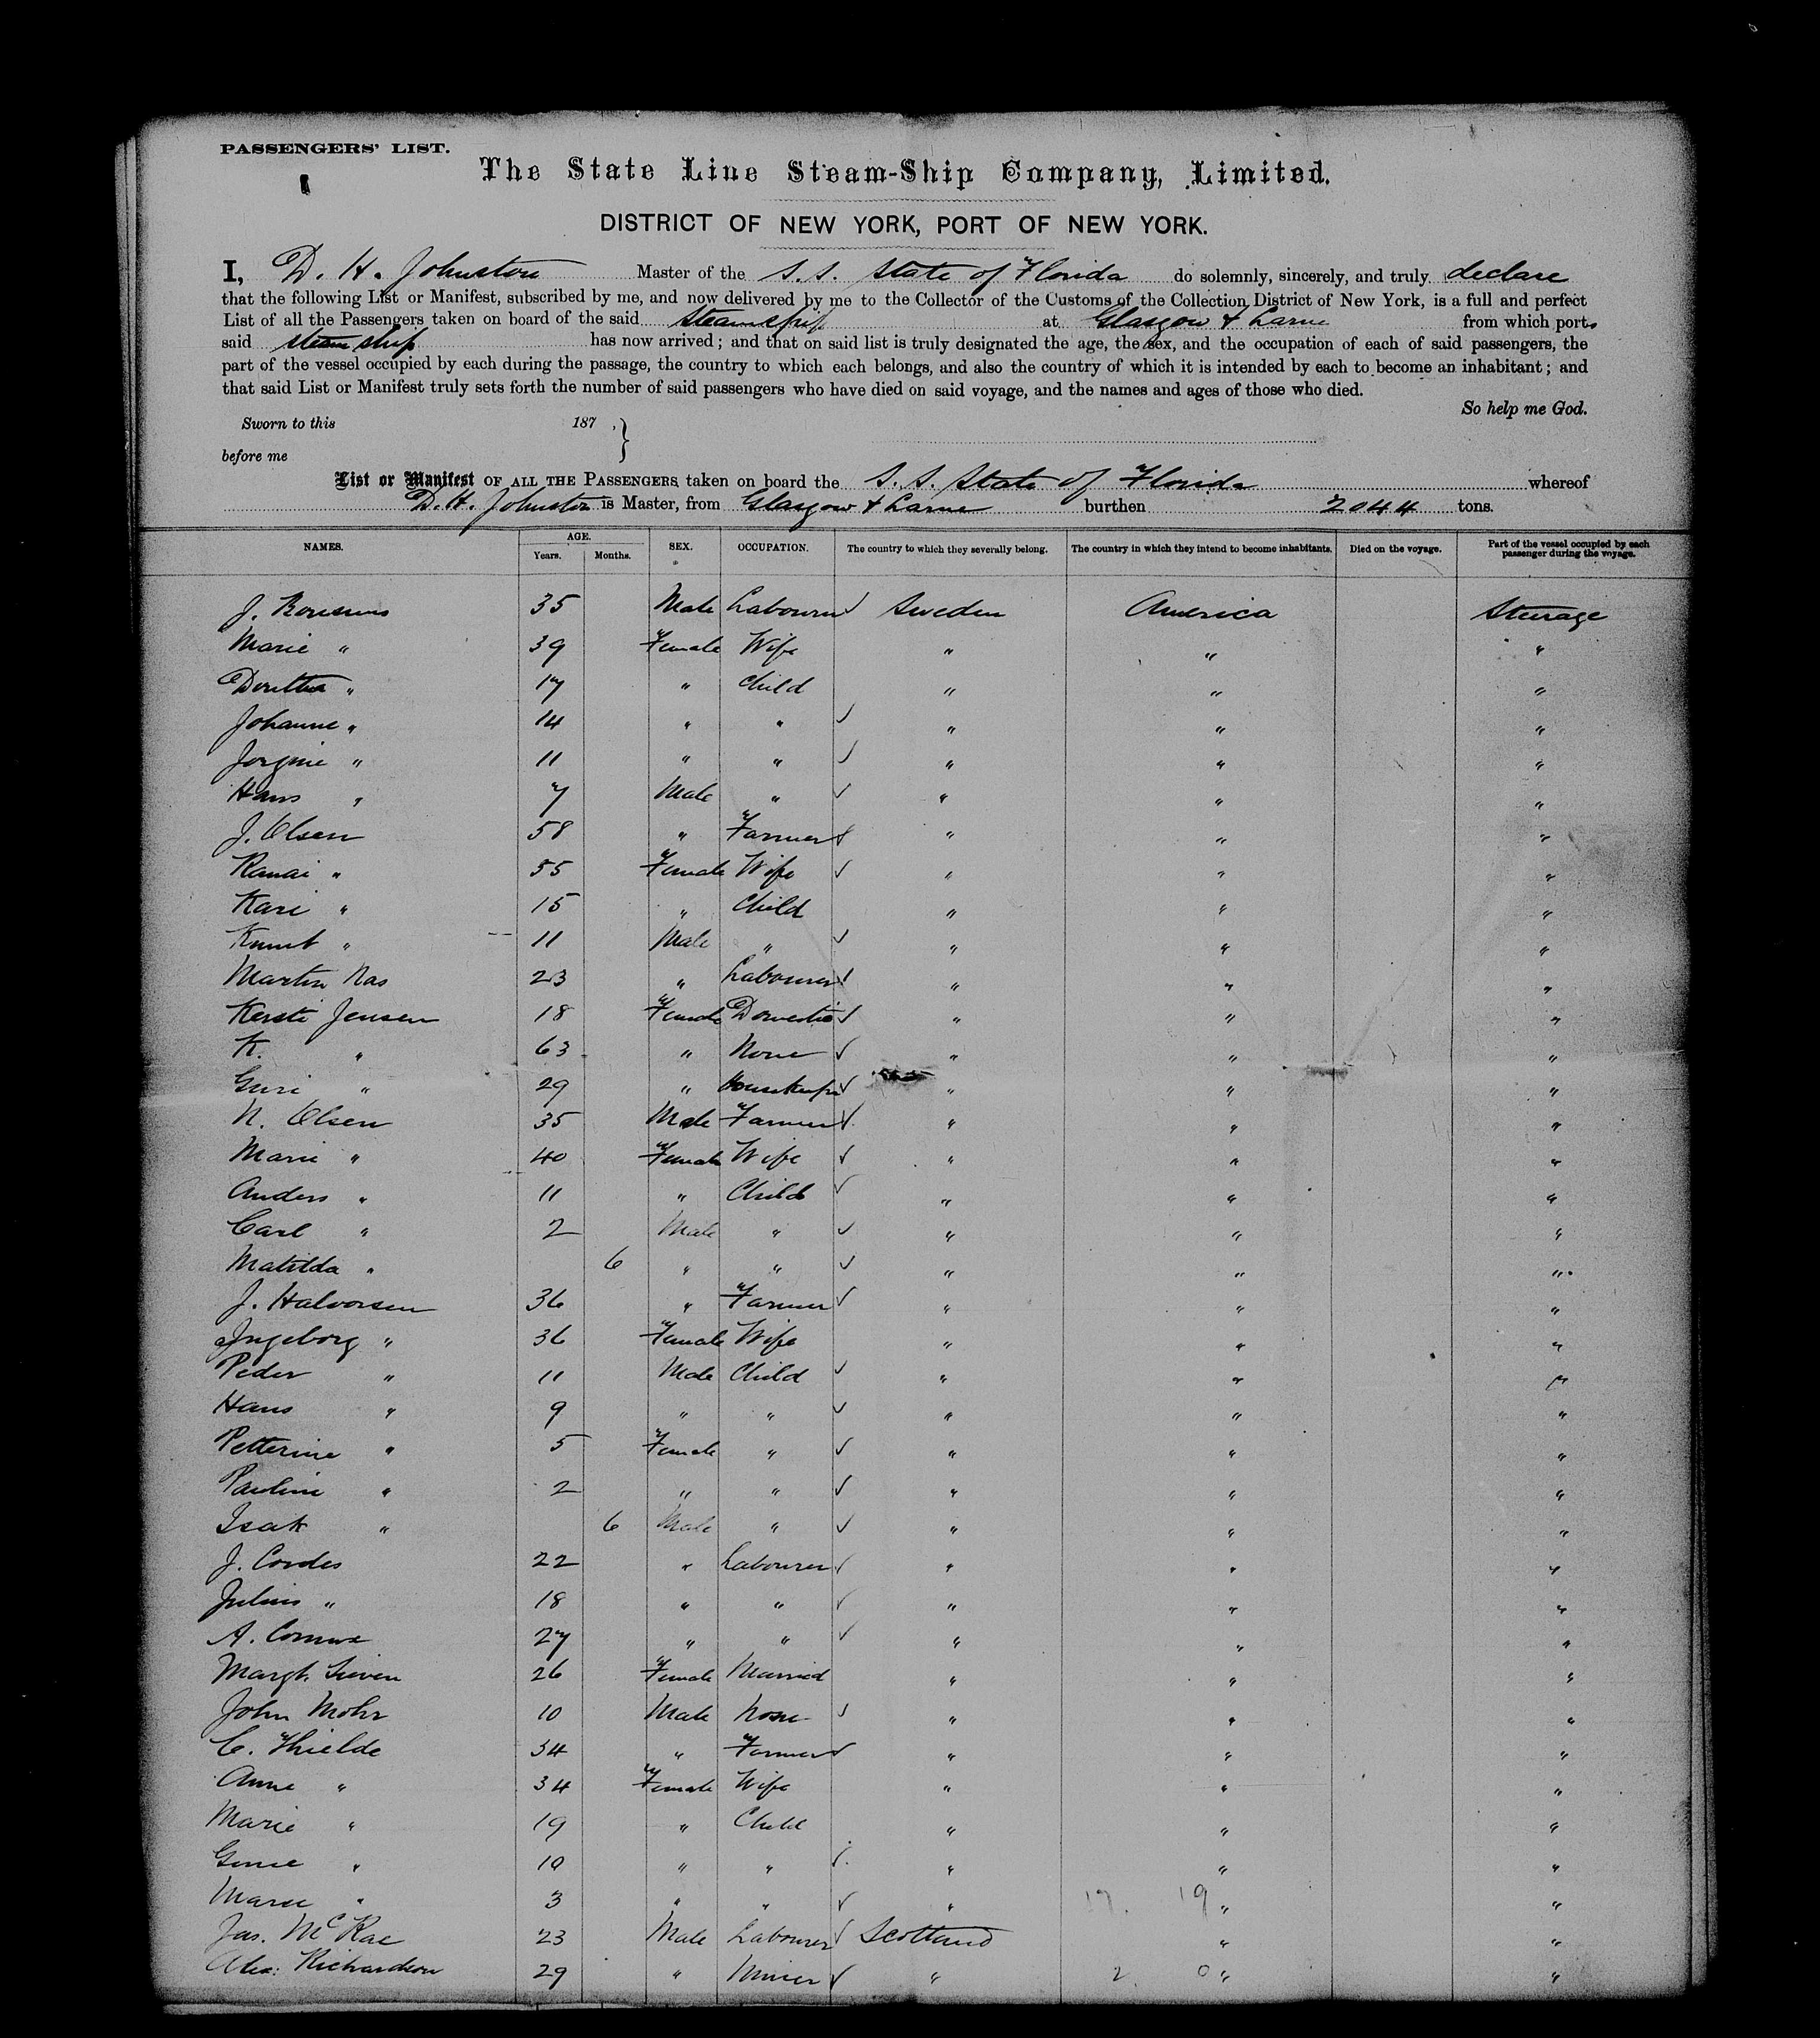 PASSENGERS' LIST.
The State Line Steam-Ship Company, Limited.
DISTRICT OF NEW YORK, PORT OF NEW YORK.
I, D. H. Johnston Master of the S.S. State of Florida do solemnly, sincerely, and truly declare
that the following List or Manifest, subscribed by me, and now delivered by me to the Collector of the Customs of the Collection District of New York, is a full and perfect
List of all the Passengers taken on board of the said Steamship at Glasgow & Larne from which ports
said steam ship has now arrived; and that on said list is truly designated the age, the sex, and the occupation of each of said passengers, the
part of the vessel occupied by each during the passage, the country to which each belongs, and also the country of which it is intended by each to become an inhabitant; and
that said List or Manifest truly sets forth the number of said passengers who have died on said voyage, and the names and ages of those who died.
So help me God.
Sworn to this 187 , }
before me
List or Manifest OF ALL THE PASSENGERS taken on board the S.S. State of Florida whereof
D. H. Johnston is Master, from Glasgow & Larne burthen 2044 tons.
NAMES. AGE. Years. Months. SEX. OCCUPATION. The country to which they severally belong. The country in which they intend to become inhabitants. Died on the voyage. Part of the vessel occupied by each passenger during the voyage.
J. 35 Male Labourer Sweden America Steerage
Marie " 39 Female Wife " " "
Dorthea " 17 " Child " " "
Johanne " 14 " " " " "
Jorgine " 11 " " " " "
Hans " 7 Male " " " "
J. Olsen 58 " Farmer " " "
" 55 Female Wife " " "
Kari " 15 " Child " " "
Knut " 11 Male " " " "
Martin Nas 23 " Labourer " " "
Kersti Jensen 18 Female Domestic " " "
K. " 63 " None " " "
Guri " 29 " Housekeeper " " "
N. Olsen 35 Male Farmer " " "
Marie " 40 Female Wife " " "
Anders " 11 " Child " " "
Carl " 2 Male " " " "
Matilda " 6 " " " " "
J. Halvorsen 36 " Farmer " " "
Ingeborg " 36 Female Wife " " "
Peder " 11 Male Child " " "
Hans " 9 " " " " "
Petterine " 5 Female " " " "
Pauline " 2 " " " " "
Isak " 6 Male " " " "
J. Cordes 22 " Labourer " " "
Julius " 18 " " " " "
A. 27 " " " " "
Margt. 26 Female Married " " "
John Mohr 10 Male None " " "
C. Thielde 34 " Farmer " " "
Anne " 34 Female Wife " " "
Marie " 19 " Child " " "
" 10 " " " " "
Marie " 3 " " " 17. 19 " "
Jas. McRae 23 Male Labourer Scotland " "
Alex: Richardson 29 " Miner " 2. 0 " "